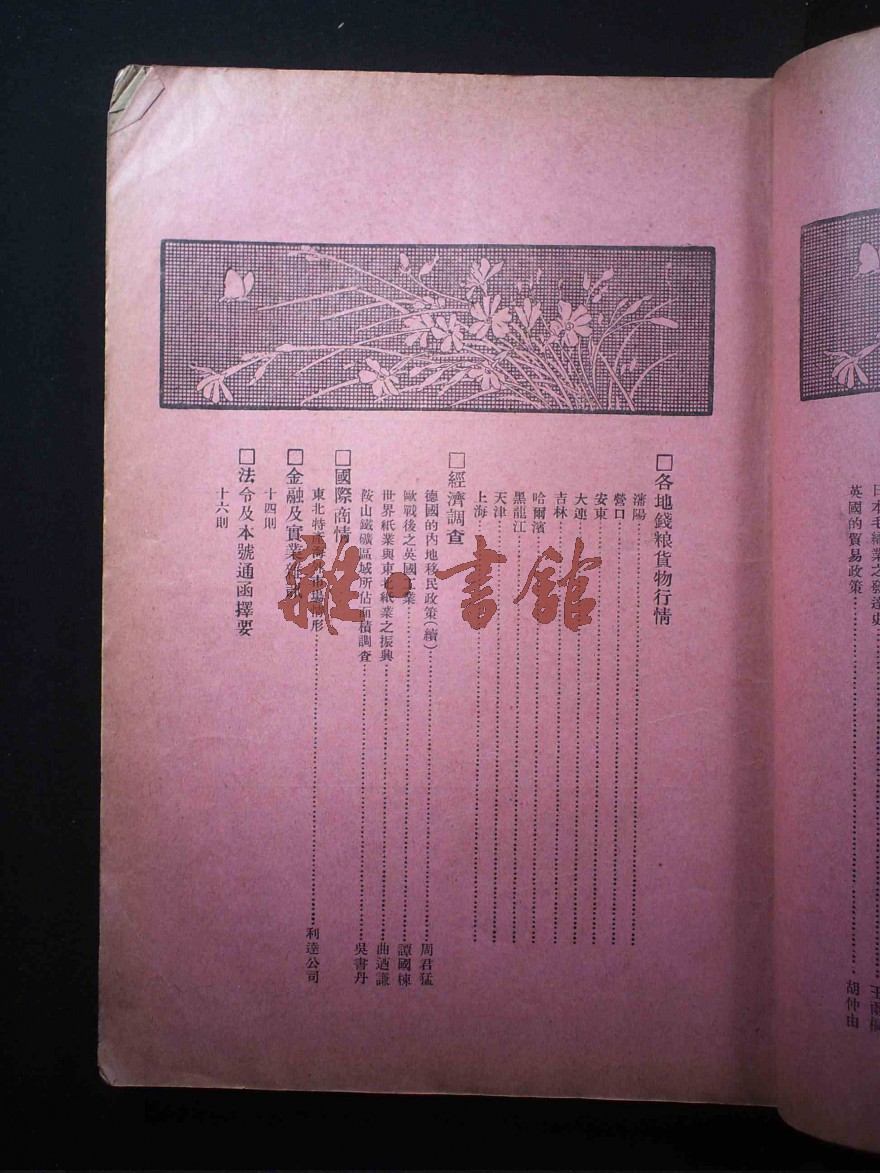 日本毛織業之發達史
英國的貿易政策 胡仲由
□各地錢粮貨物行情
瀋陽
營口
安東
大連
吉林
哈爾濱
黑龍江
天津
上海
□經濟調查
德國的內地移民政策(續) 周君猛
歐戰後之英國工業 譚國棟
世界紙業與東北紙業之振興 曲迺謙
鞍山鐵礦區域所佔面積調查 吳書丹
□國際商情
東北特產海外市場情形 利達公司
□金融及實業雜訊
十四則
□法令及本號通函擇要
十六則
雅·書館